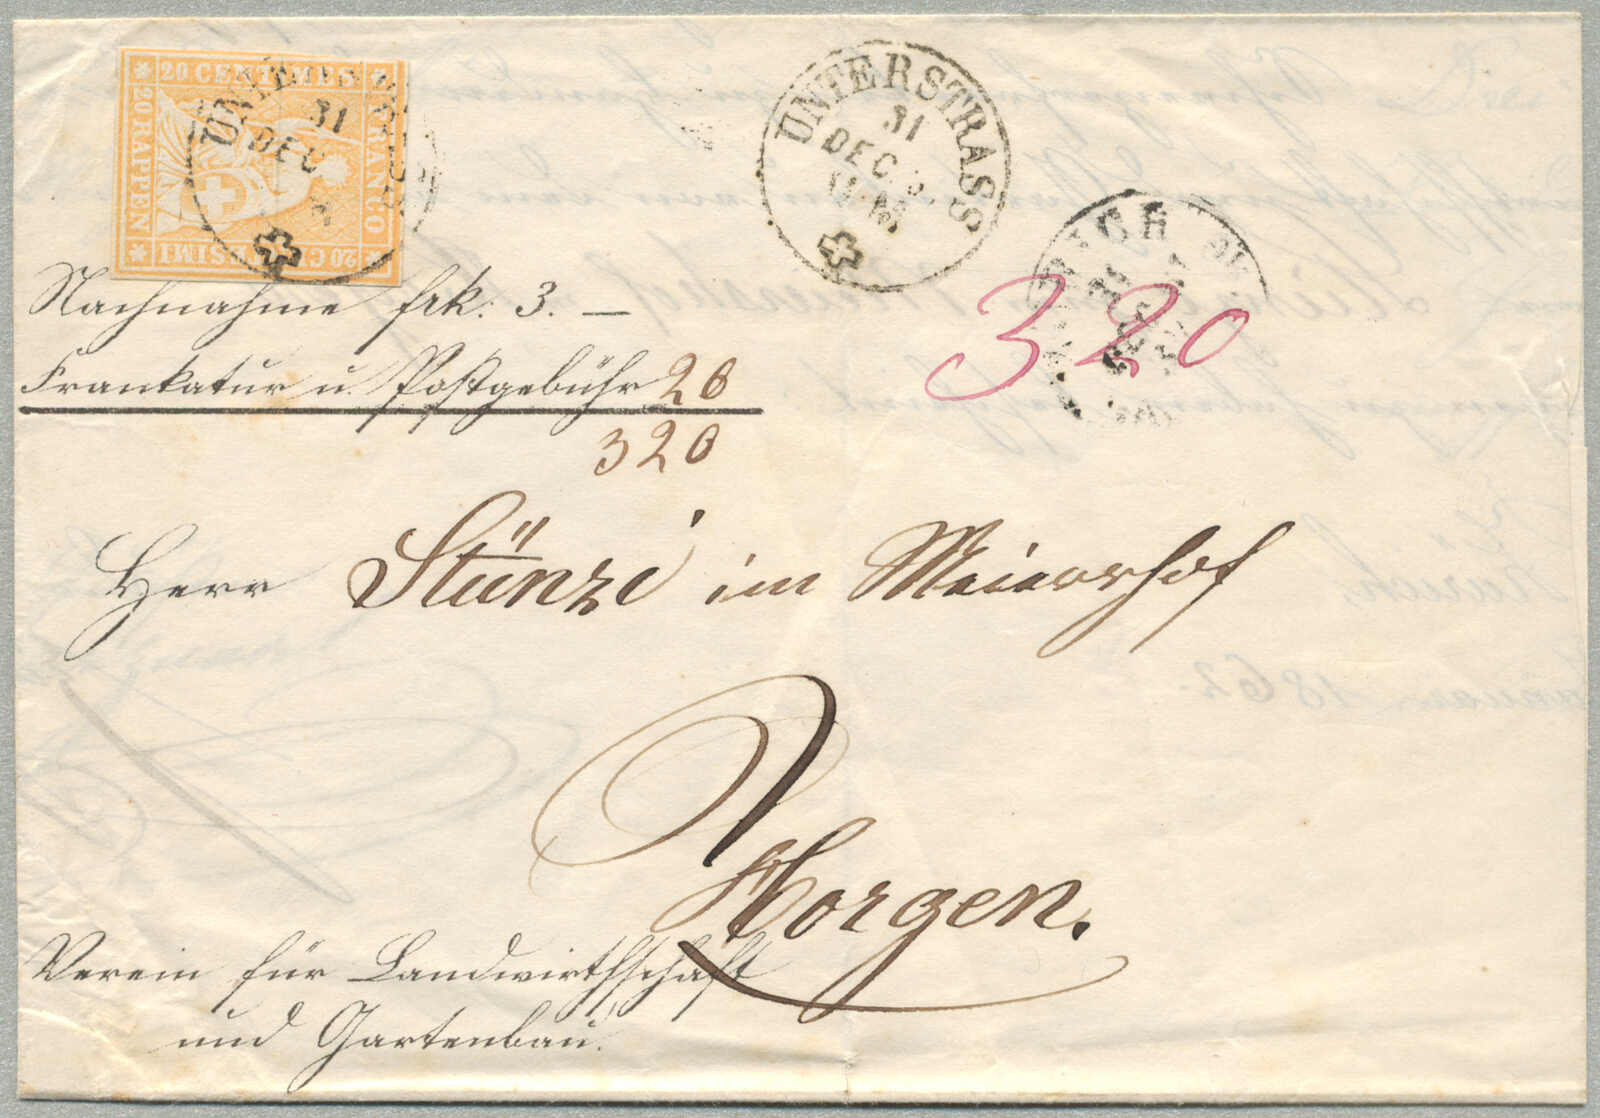 20 CENTIMES
FRANCO
20 RAPPEN
20 CENTESIMI
UNTERSTRASS
31
DEC
UNTERSTRASS
31
DEC
Nachnahme frk: 3. —
Frankatur u. Postgebühr 20
320
320
Herr Stünzi im Meierhof
Horgen.
Verein für Landwirthschaft
und Gartenbau.